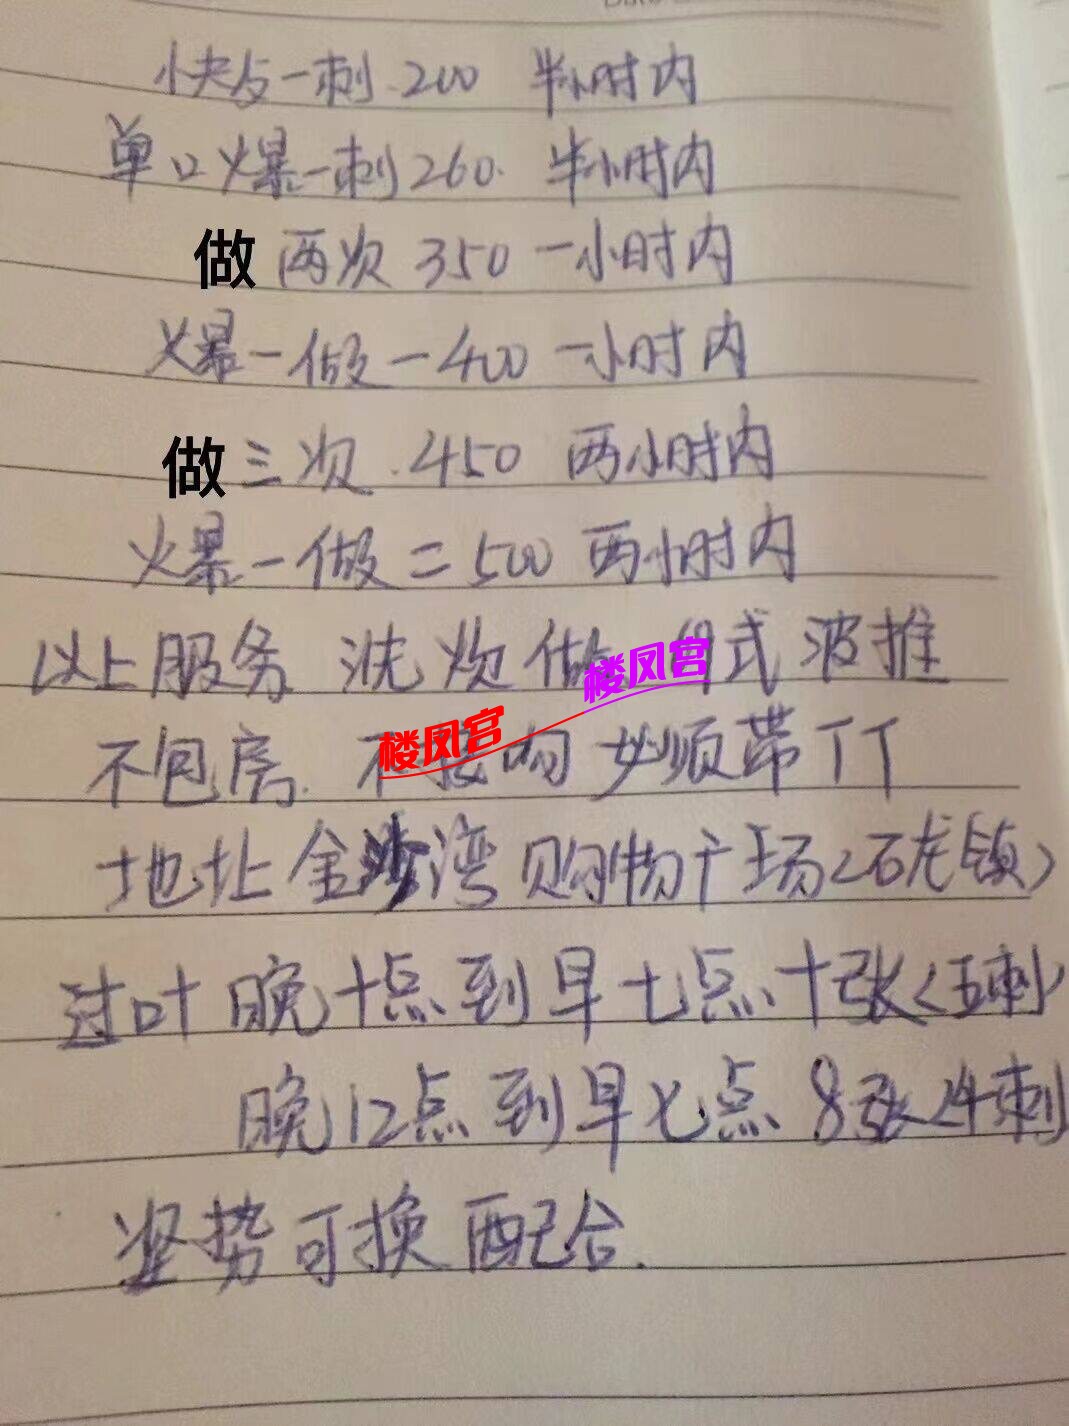 小快与一刺.200 半小时内
单口爆一刺260. 半小时内
做 两次 350 一小时内
爆一做一400 一小时内
做三次.450 两小时内
爆一做二500 两小时内
以上服务 洗 做 式 波推
楼凤宫
不包房. 不接吻 必须带TT
楼凤宫
地址金沙湾购物广场(石龙镇)
过叶 晚十点到早七点十张(五刺
晚12点到早七点 8张(4刺
姿势可换配合.